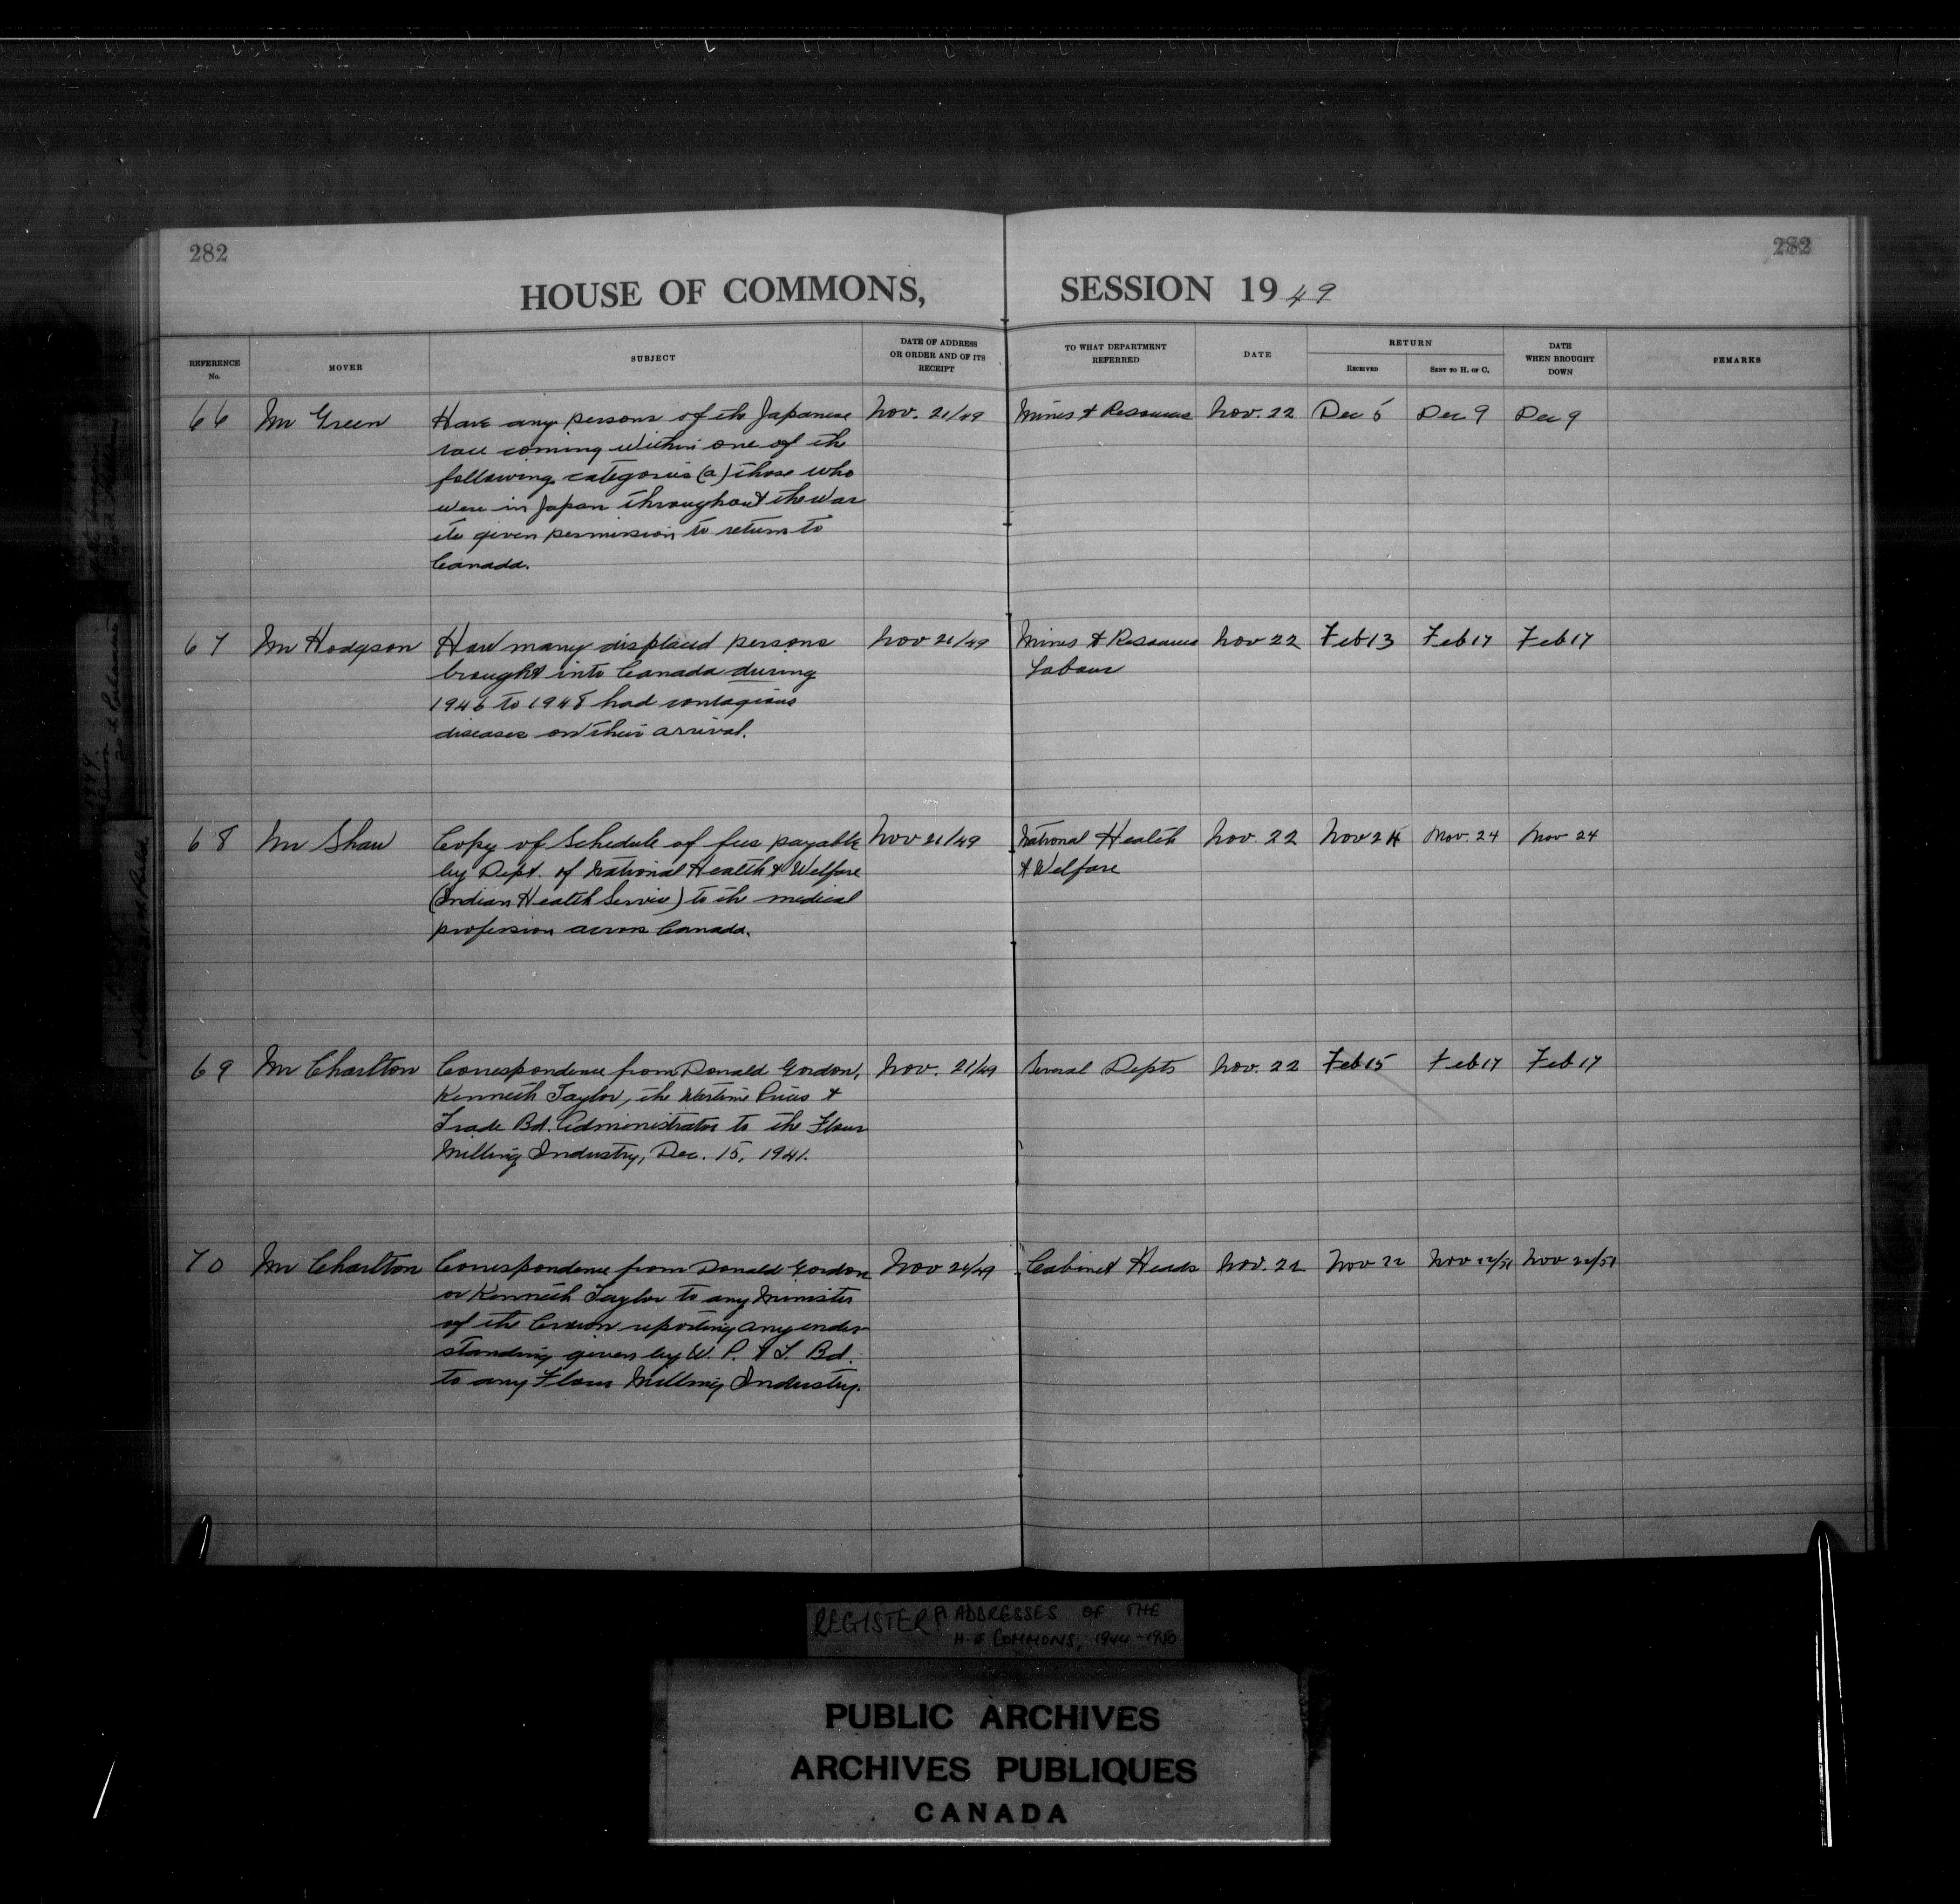 282
282
HOUSE OF COMMONS, SESSION 1949
REFERENCE No. MOVER SUBJECT DATE OF ADDRESS OR ORDER AND OF ITS RECEIPT TO WHAT DEPARTMENT REFERRED DATE RETURN RECEIVED SENT TO H. OF C. DATE WHEN BROUGHT DOWN REMARKS
66 Mr Green Have any persons of the Japanese Nov. 21/49 Mines & Resources Nov. 22 Dec 5 Dec 9 Dec 9
race coming within one of the
following categories (a) those who
were in Japan throughout the war
etc given permission to return to
Canada.
67 Mr Hodgson How many displaced persons Nov 21/49 Mines & Resources Nov 22 Feb 13 Feb 17 Feb 17
brought into Canada during Labour
1946 to 1948 had contagious
diseases on their arrival.
68 Mr Shaw Copy of Schedule of fees payable Nov 21/49 National Health Nov. 22 Nov 24 Nov. 24 Nov 24
by Dept. of National Health & Welfare & Welfare
(Indian Health Service) to the medical
profession across Canada.
69 Mr Charlton Correspondence from Donald Gordon, Nov. 21/49 Several Depts Nov. 22 Feb 15 Feb 17 Feb 17
Kenneth Taylor, the Wartime Prices &
Trade Bd. Administrator to the Flour
Milling Industry, Dec. 15, 1941.
70 Mr Charlton Correspondence from Donald Gordon Nov 21/49 Cabinet Heads Nov. 22 Nov 22 Nov Nov
or Kenneth Taylor to any Minister
of the Crown reporting any under
standing given by W. P. & T. Bd.
to any Flour Milling Industry.
REGISTER of ADDRESSES OF THE
H. of COMMONS, 1944-1950
PUBLIC ARCHIVES
ARCHIVES PUBLIQUES
CANADA